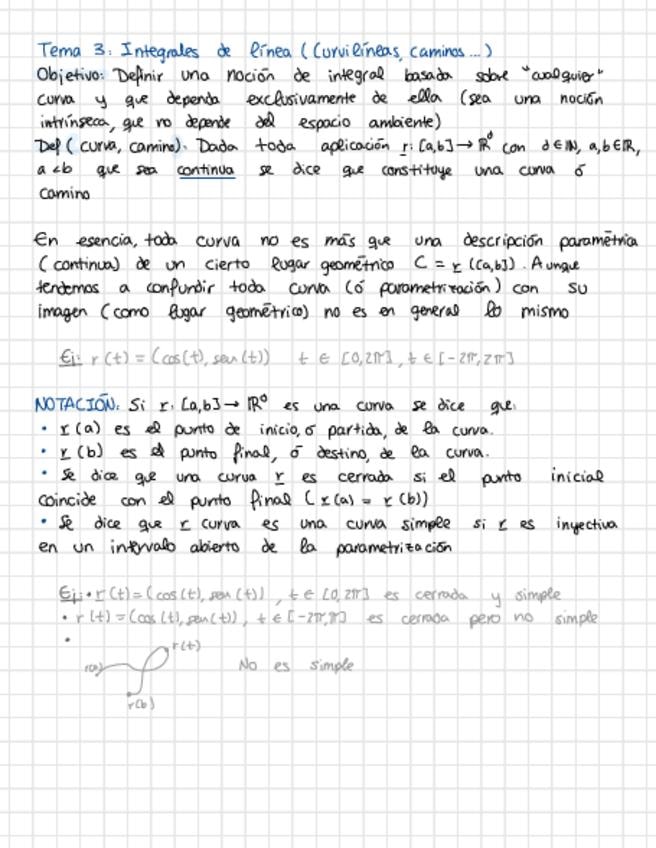 Tema 3: Integrales de línea (Curvilíneas, caminos...)
Objetivo: Definir una noción de integral basada sobre "cualquier"
curva y que dependa exclusivamente de ella (sea una noción
intrínseca, que no depende del espacio ambiente)
Def (curva, camino). Dada toda aplicación r: [a,b] → ℝᵈ con d∈ℕ, a,b∈ℝ,
a<b que sea continua se dice que constituye una curva ó
camino
En esencia, toda curva no es más que una descripción paramétrica
(continua) de un cierto lugar geométrico C = r([a,b]). Aunque
tendemos a confundir toda curva (ó parametrización) con su
imagen (como lugar geométrico) no es en general lo mismo
Ej: r(t) = (cos(t), sen(t)) t ∈ [0,2π], t ∈ [-2π,2π]
NOTACIÓN: Si r: [a,b] → ℝᵈ es una curva se dice que:
• r(a) es el punto de inicio, ó partida, de la curva.
• r(b) es el punto final, ó destino, de la curva.
• Se dice que una curva r es cerrada si el punto inicial
coincide con el punto final (r(a) = r(b))
• Se dice que r curva es una curva simple si r es inyectiva
en un intervalo abierto de la parametrización
Ej: • r(t) = (cos(t), sen(t)), t ∈ [0,2π] es cerrada y simple
• r(t) = (cos(t), sen(t)), t ∈ [-2π, es cerrada pero no simple
•
r(t)
r(a)
No es simple
r(b)